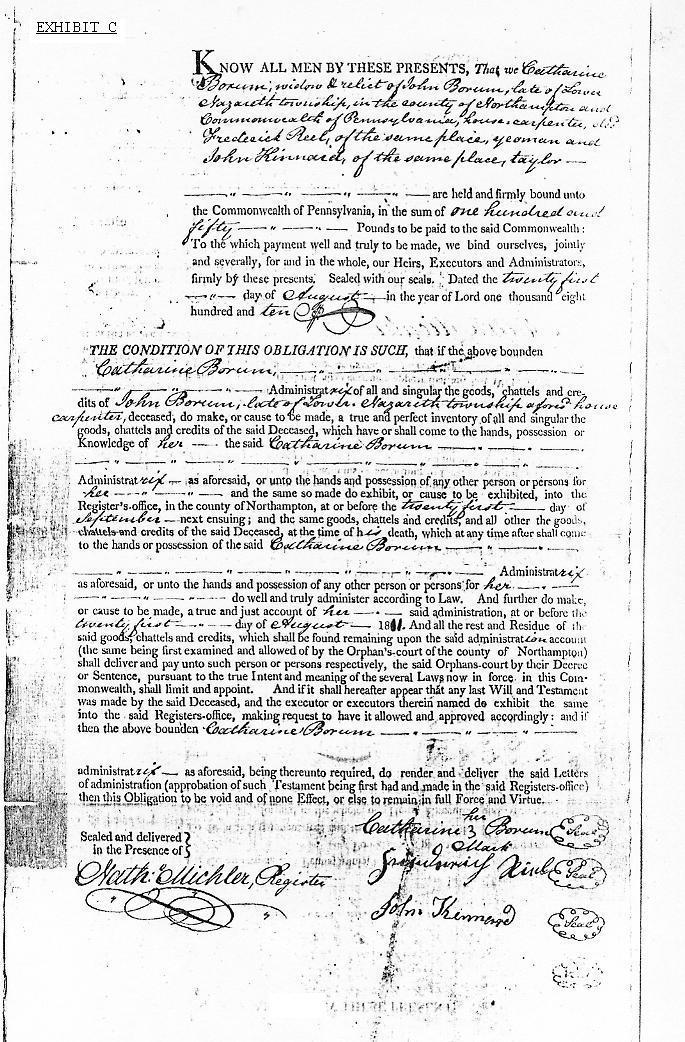 EXHIBIT C
KNOW ALL MEN BY THESE PRESENTS, That we Catharine
Borum, widow & relict of John Borum, late of Lower
Nazareth township, in the county of Northampton and
Commonwealth of Pennsylvania, house carpenter,
Frederick Reel, of the same place, yeoman and
John Kinnard, of the same place, taylor —
— " — " — " — " — are held and firmly bound unto
the Commonwealth of Pennsylvania, in the sum of one hundred and
fifty — " — " — Pounds to be paid to the said Commonwealth:
To the which payment well and truly to be made, we bind ourselves, jointly
and severally, for and in the whole, our Heirs, Executors and Administrators,
firmly by these presents. Sealed with our seals. Dated the twenty first
— " — day of August — in the year of Lord one thousand eight
hundred and ten
THE CONDITION OF THIS OBLIGATION IS SUCH, that if the above bounden
Catharine Borum, — " — " — " — "
— " — " — " — Administratrix of all and singular the goods, chattels and cre-
dits of John Borum, late of Lower Nazareth township afores'd house
carpenter, deceased, do make, or cause to be made, a true and perfect inventory of all and singular the
goods, chattels and credits of the said Deceased, which have or shall come to the hands, possession or
Knowledge of her — the said Catharine Borum — " — " —
— " — " — " — " — " — " — " —
Administratrix — as aforesaid, or unto the hands and possession of any other person or persons for
her — " — " — and the same so made do exhibit, or cause to be exhibited, into the
Register's-office, in the county of Northampton, at or before the twenty first — day of
September — next ensuing; and the same goods, chattels and credits, and all other the goods,
chattels and credits of the said Deceased, at the time of his death, which at any time after shall come
to the hands or possession of the said Catharine Borum — " — " —
— " — " — " — " — " — " — Administratrix
as aforesaid, or unto the hands and possession of any other person or persons for her — " —
— " — " — " — do well and truly administer according to Law. And further do make,
or cause to be made, a true and just account of her — " — said administration, at or before the
twenty first — " — day of August — 1811. And all the rest and Residue of the
said goods, chattels and credits, which shall be found remaining upon the said administration account
(the same being first examined and allowed of by the Orphan's-court of the county of Northampton)
shall deliver and pay unto such person or persons respectively, the said Orphans-court by their Decree
or Sentence, pursuant to the true Intent and meaning of the several Laws now in force in this Com-
monwealth, shall limit and appoint. And if it shall hereafter appear that any last Will and Testament
was made by the said Deceased, and the executor or executors therein named do exhibit the same
into the said Registers-office, making request to have it allowed and approved accordingly: and if
then the above bounden Catharine Borum — " — " — " —
administratrix — as aforesaid, being thereunto required, do render and deliver the said Letters
of administration (approbation of such Testament being first had and made in the said Registers-office)
then this Obligation to be void and of none Effect, or else to remain in full Force and Virtue.
her
Catharine 3 Borum Seal
Mark
Sealed and delivered
in the Presence of
Seal
Nath: Michler, Register
John Kennard Seal
Seal